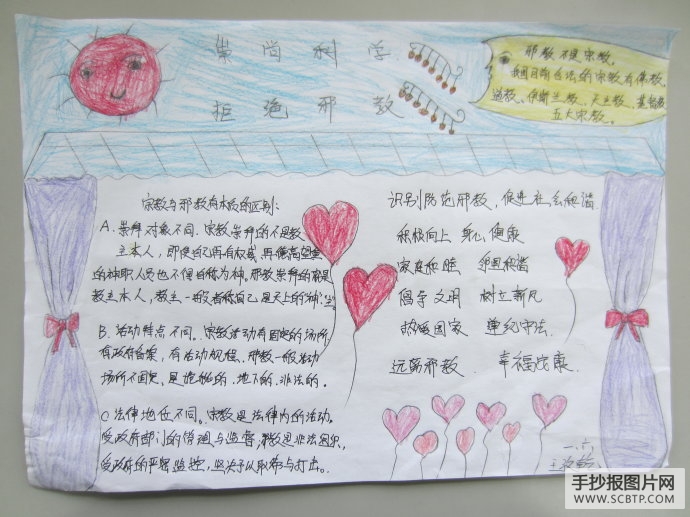 崇尚科学
拒绝邪教
邪教不是宗教,
我国目前合法的宗教有佛教,
道教、伊斯兰教、天主教、基督教
五大宗教。
宗教与邪教有本质的区别:
A、崇拜对象不同。宗教崇拜的不是教
主本人,即使自己再有权威,再德高望重
的神职人员也不能自称为神。邪教崇拜的就是
教主本人,教主一般者称自己是天上的神
B、活动特点不同。宗教活动有固定的场所,
有政府备案,有活动规程、邪教一般活动
场所不固定,是诡秘的、地下的、非法的。
C、法律地位不同。宗教是法律内的活动。
受政府部门的管理与监督,邪教是非法组织,
受政府的严密监控,坚决予以取缔与打击。
识别防范邪教,促进社会和谐
积极向上 身心健康
家庭和睦 邻里和谐
倡导文明 树立新风
热爱国家 遵纪守法
远离邪教 幸福安康
一、六
手抄报图片网
WWW.SCBTP.COM